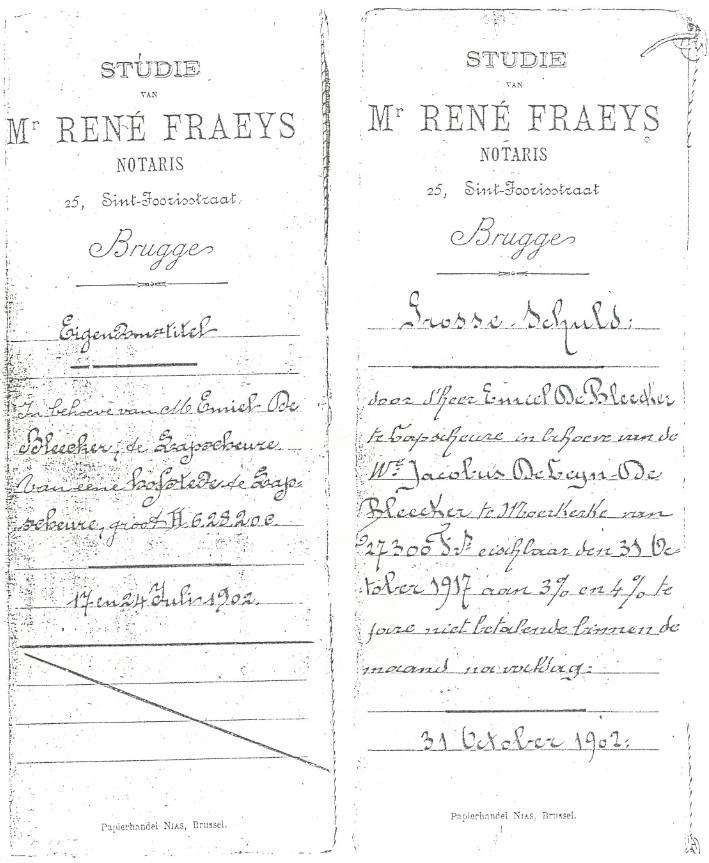 STUDIE
VAN
Mr RENÉ FRAEYS
NOTARIS
25, Sint-Joorisstraat,
Brugge
Eigendomstitel
In behoeve van M Emiel De
Bleecker, te Lapscheure
van eene hofstede te Lap-
scheure, groot H 6.28.20 c.
17 en 24 Juli 1902.
Papierhandel NIAS, Brussel.
STUDIE
VAN
Mr RENÉ FRAEYS
NOTARIS
25, Sint-Joorisstraat
Brugge
Grosse-Schuld:
door d'heer Emiel De Bleecker
te Lapscheure in behoeve van de
We Jacobus DeLeyn-De
Bleecker te Moerkerke van
27300 Fr eischbaar den 31 Oc-
tober 1917 aan 3% en 4% te
jare niet betalende binnen de
maand na vervaldag:
31 October 1902:
Papierhandel NIAS, Brussel.